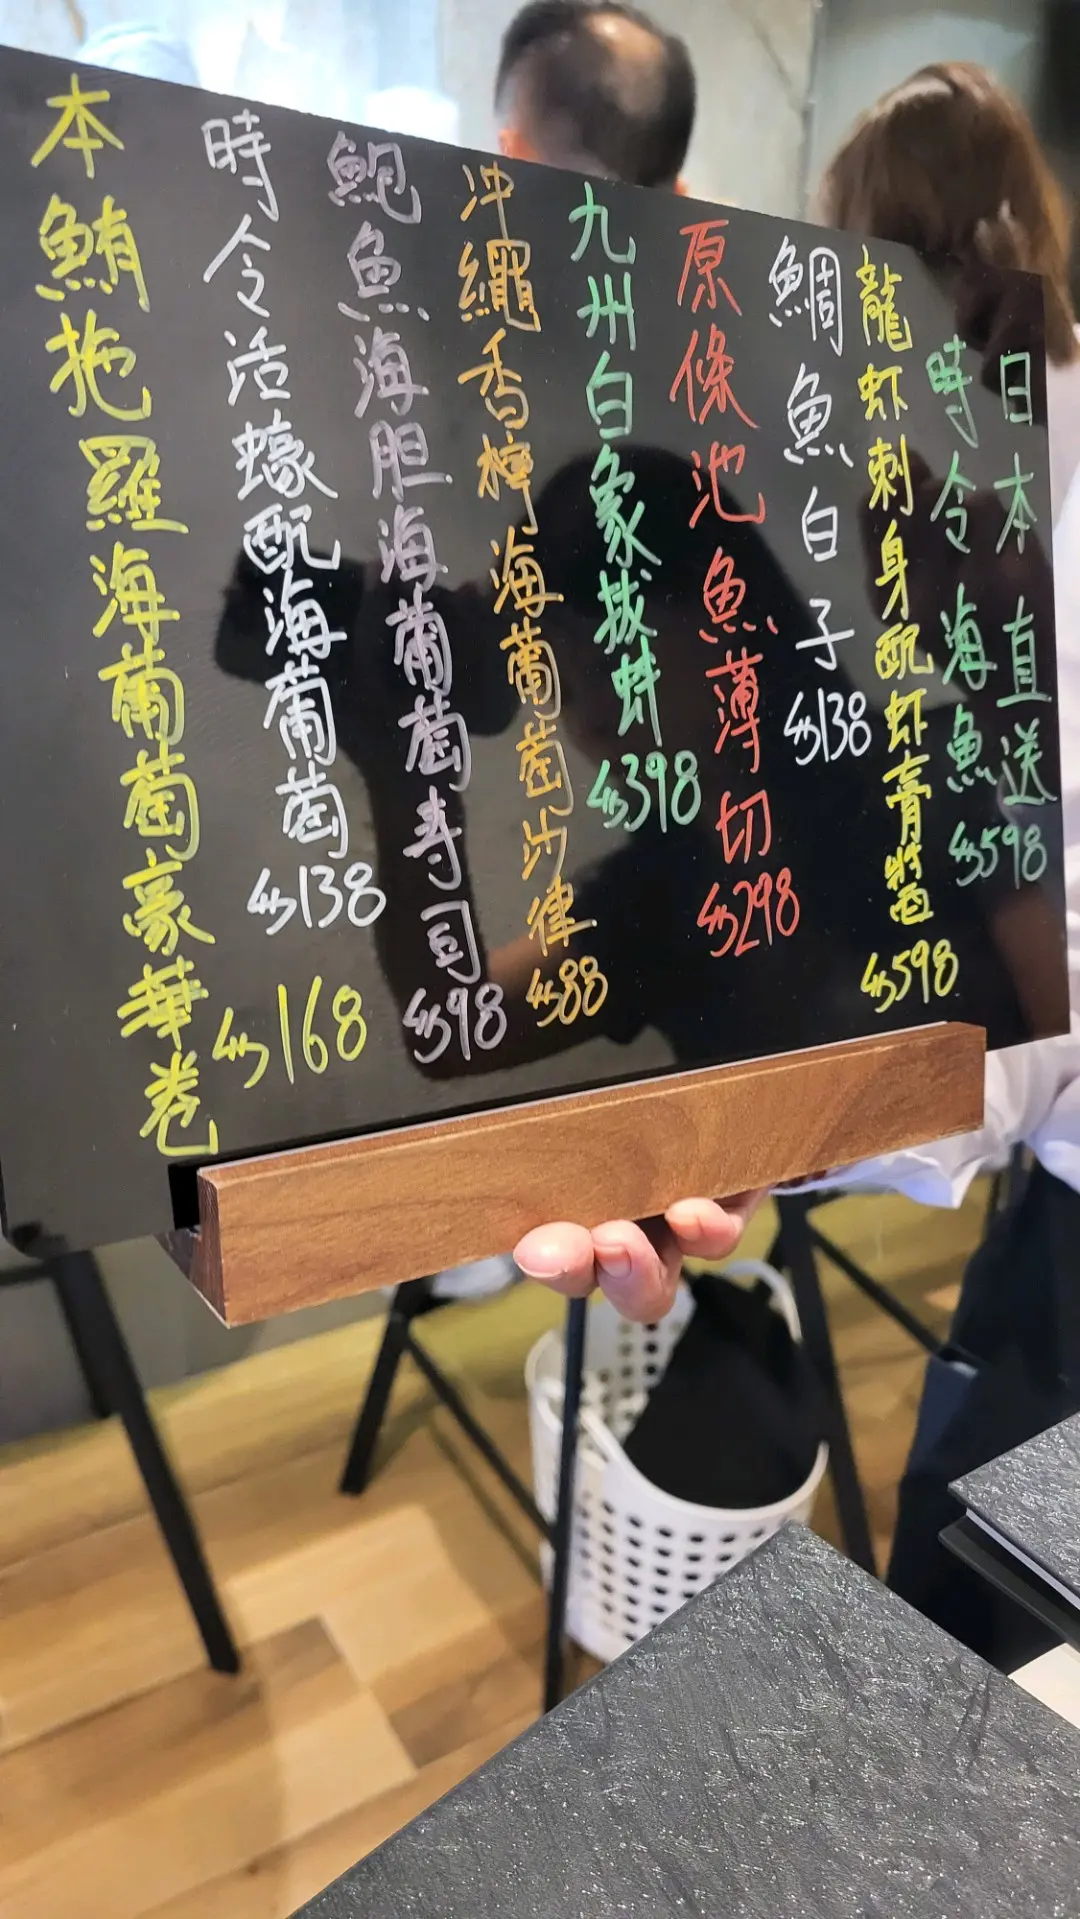 日本直送
時令海魚 $598
龍虾刺身配虾膏醬 $598
鯛魚白子 $138
原條池魚薄切 $298
九州白象拔蚌 $398
沖繩香檸海葡萄沙律 $88
鮑魚海胆海葡萄寿司 $98
時令活蠔配海葡萄 $138
本鮪拖羅海葡萄豪華卷 $168